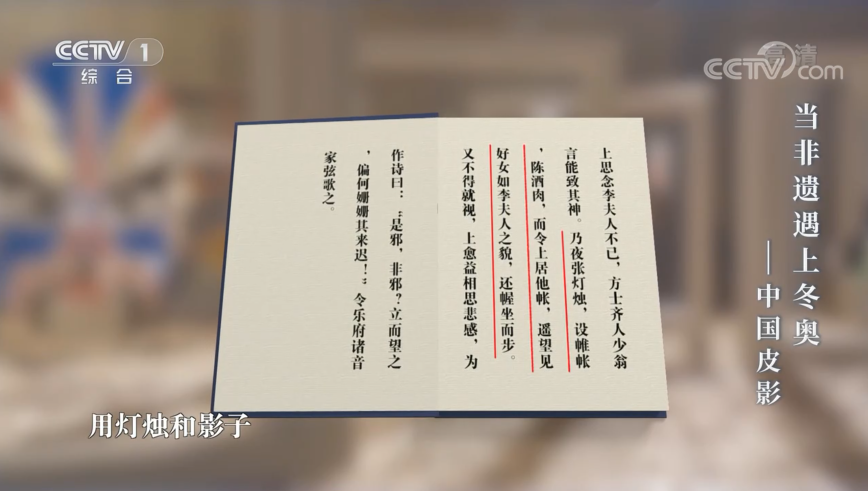 CCTV 1
综合
高清
CCTV.com
当非遗遇上冬奥
——中国皮影
上思念李夫人不已，方士齐人少翁
言能致其神。乃夜张灯烛，设帷帐
，陈酒肉，而令上居他帐，遥望见
好女如李夫人之貌，还幄坐而步。
又不得就视，上愈益相思悲感，为
作诗曰：“是邪，非邪？立而望之
，偏何姗姗其来迟！”令乐府诸音
家弦歌之。
用灯烛和影子